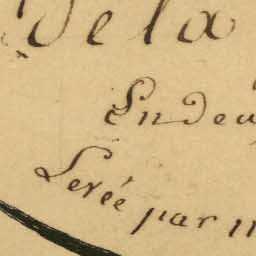 De la
En deu
Levée par m